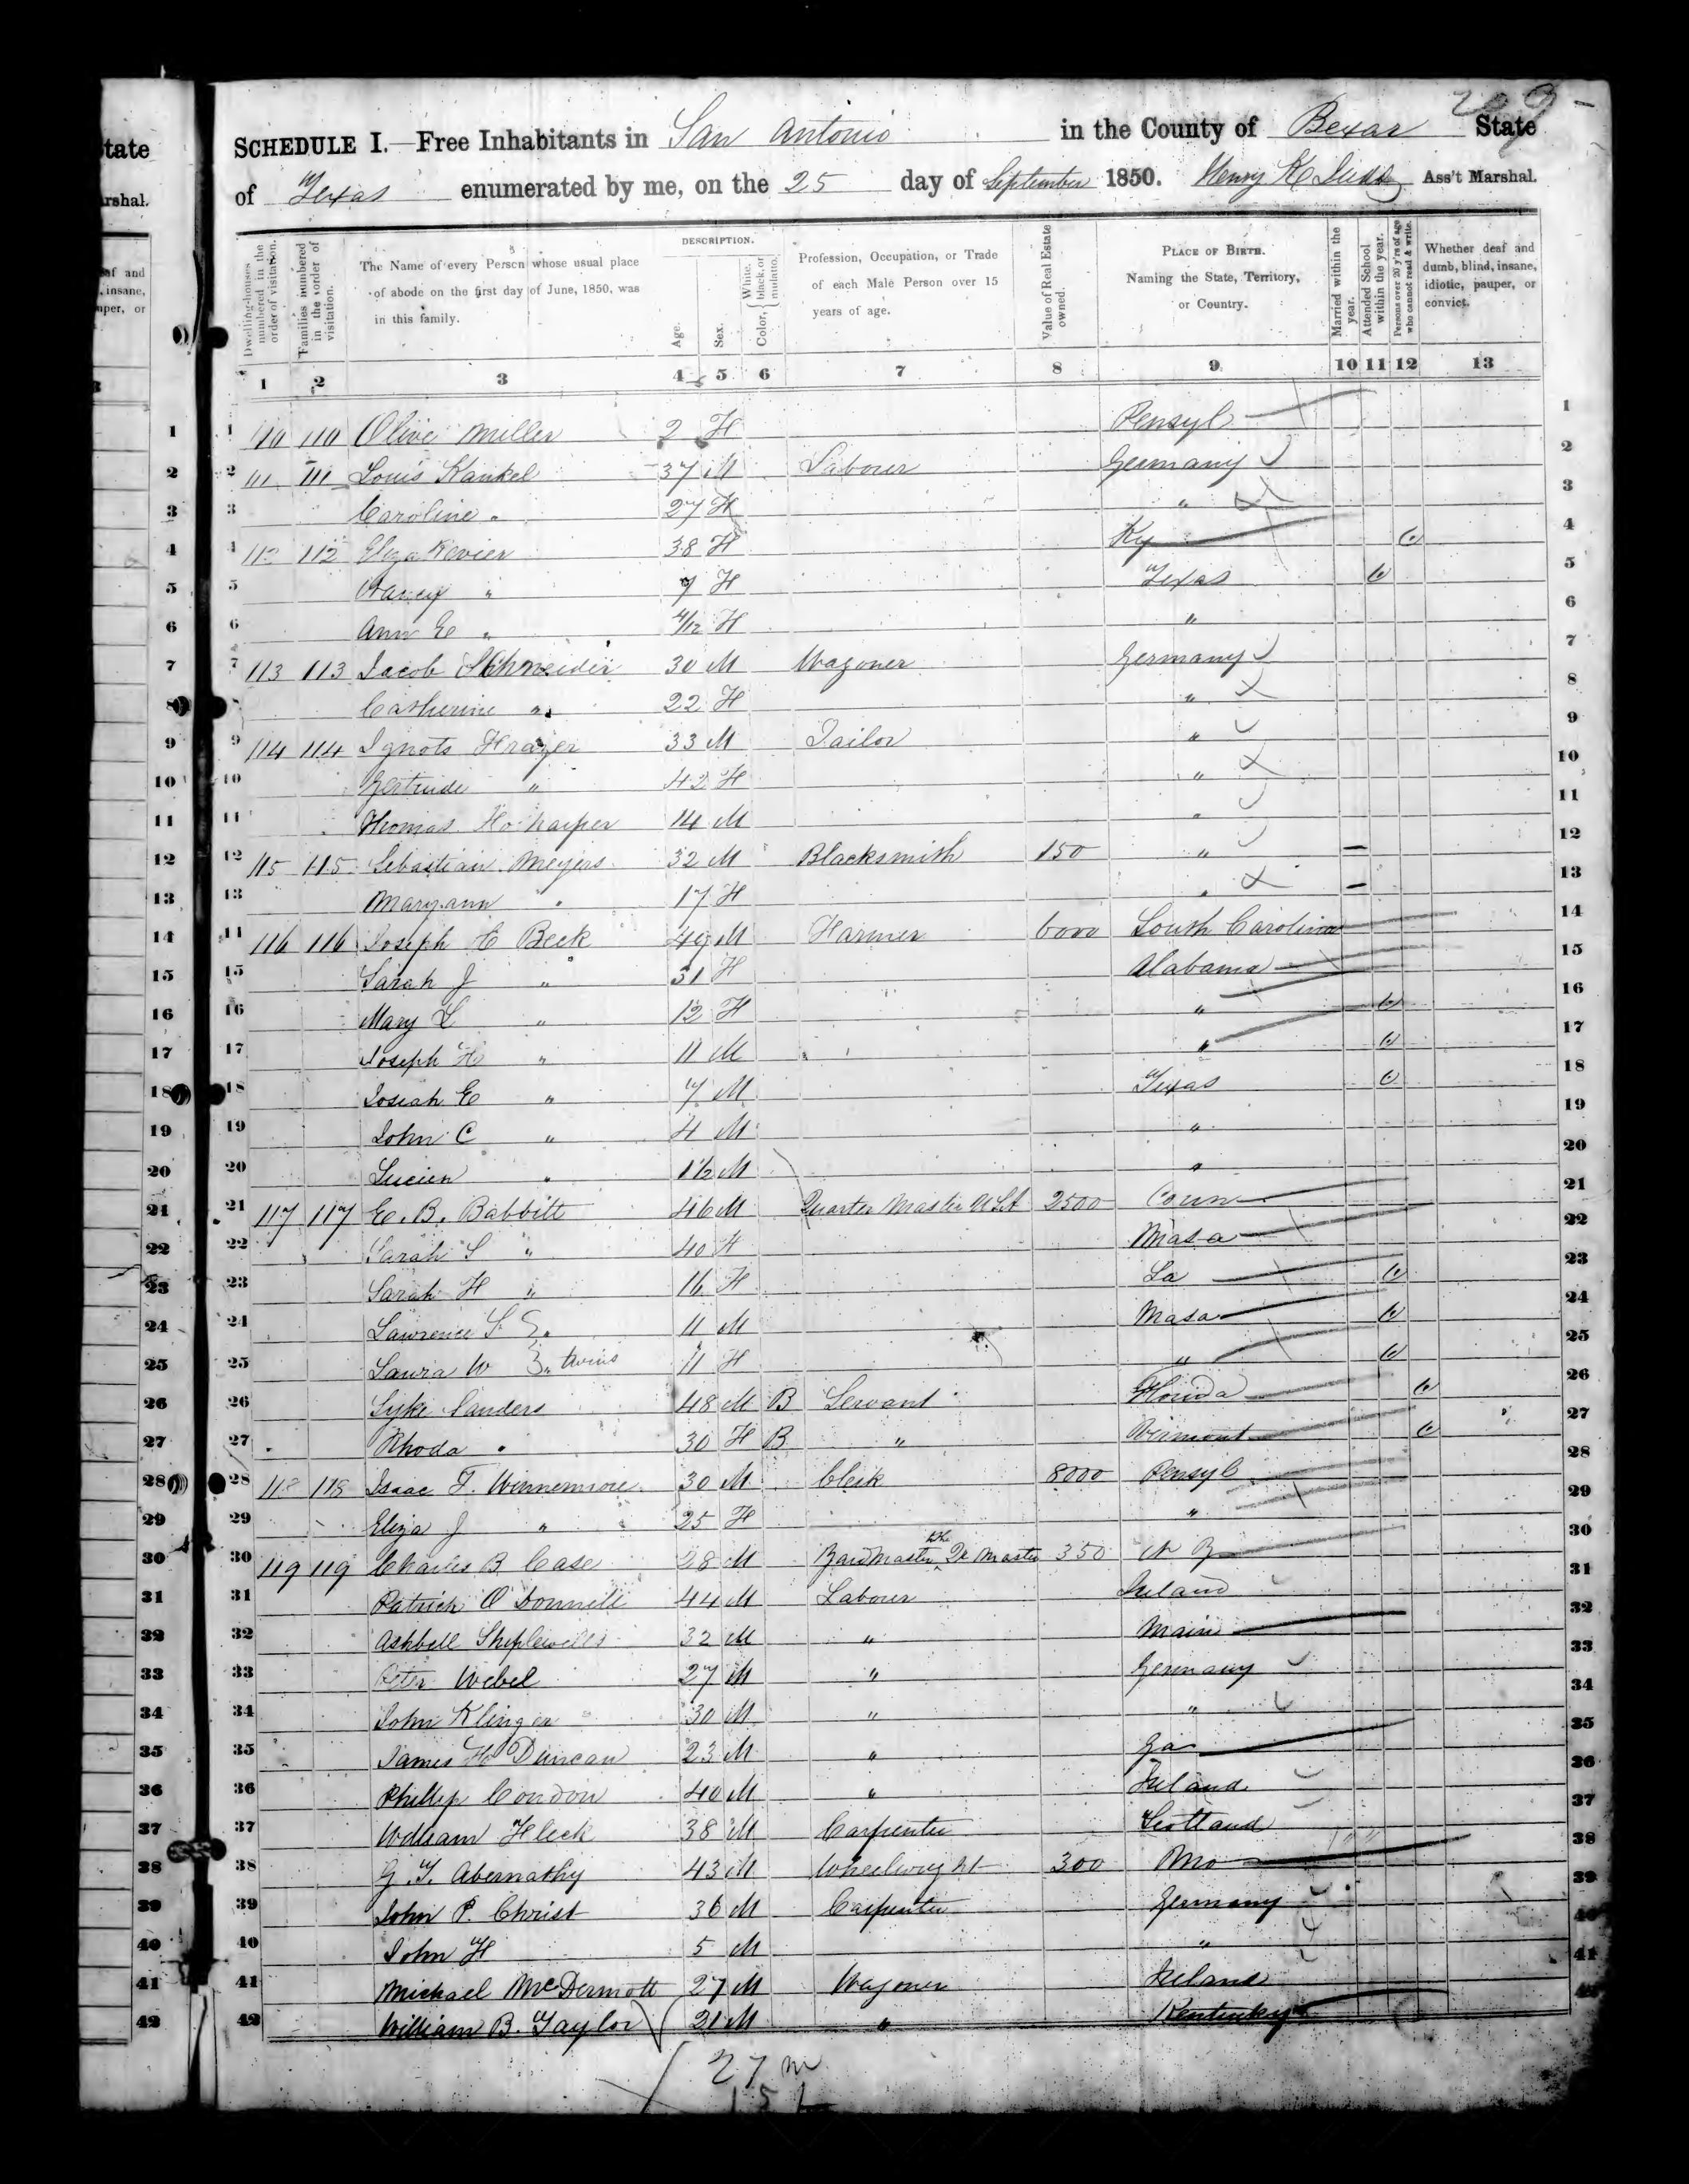 209
SCHEDULE I.—Free Inhabitants in San Antonio in the County of Bexar State
of Texas enumerated by me, on the 25 day of September 1850. Henry Ass't Marshal.
Dwelling-houses numbered in the order of visitation.
Families numbered in the order of visitation.
The Name of every Person whose usual place of abode on the first day of June, 1850, was in this family.
DESCRIPTION.
Age.
Sex.
Color, { White, black, or mulatto.
Profession, Occupation, or Trade of each Male Person over 15 years of age.
Value of Real Estate owned.
PLACE OF BIRTH. Naming the State, Territory, or Country.
Married within the year.
Attended School within the year.
Persons over 20 y'rs of age who cannot read & write.
Whether deaf and dumb, blind, insane, idiotic, pauper, or convict.
1 2 3 4 5 6 7 8 9 10 11 12 13
1 110 110 Olive Miller 2 F Pensyl 1
2 111 111 Louis Kankel 37 M Labour Germany 2
3 Caroline " 27 F " 3
4 112 112 Eliza 38 F Ky 4
5 Nancy " 7 F Texas 5
6 Ann E " 4/12 F " 6
7 113 113 Jacob Schneider 30 M Wagoner Germany 7
8 Catherine " 22 F " 8
9 114 114 Ignots Frazer 33 M Tailor " 9
10 Gertrude " 42 F " 10
11 Thomas 14 M " 11
12 115 115 Sebastian Meyers 32 M Blacksmith 150 " 12
13 Maryann " 17 F " 13
14 116 116 Joseph C Beck 49 M Farmer 6000 South Carolina 14
15 Sarah J " 31 F Alabama 15
16 Mary L " 12 F " 16
17 Joseph H " 11 M " 17
18 Josiah E " 7 M Texas 18
19 John C " 4 M " 19
20 Lucien " 1½ M " 20
21 117 117 E. B. Babbitt 46 M Quarter Master USA 2500 Conn 21
22 Sarah S " 40 F Masa 22
23 Sarah H " 16 F La 23
24 Lawrence S 11 M Masa 24
25 Laura W " twins 11 F " 25
26 Syke Sanders 48 M B Servant Florida 26
27 Rhoda " 30 F B " Vermont 27
28 118 118 Isaac T. Winnemore 30 M Clerk 8000 Pensyl 28
29 Eliza J " 25 F " 29
30 119 119 Charles B. Case 28 M Qr Master 350 30
31 Patrick O Donnell 44 M Labour Ireland 31
32 Ashbell 32 M " Main 32
33 Peter Webel 27 M " Germany 33
34 John Klinger 30 M " " 34
35 James H Duncan 23 M " Ga 35
36 Phillip Condon 40 M " Ireland 36
37 William Fleck 38 M Carpenter Scotland 37
38 G. T. Abernathy 43 M Wheelwright 300 Mo 38
39 John P. Christ 36 M Carpenter Germany 39
40 John H 5 M " 40
41 Michael McDermott 27 M Wagoner Ireland 41
42 William B. Taylor 21 M " Kentucky 42
27 m
15